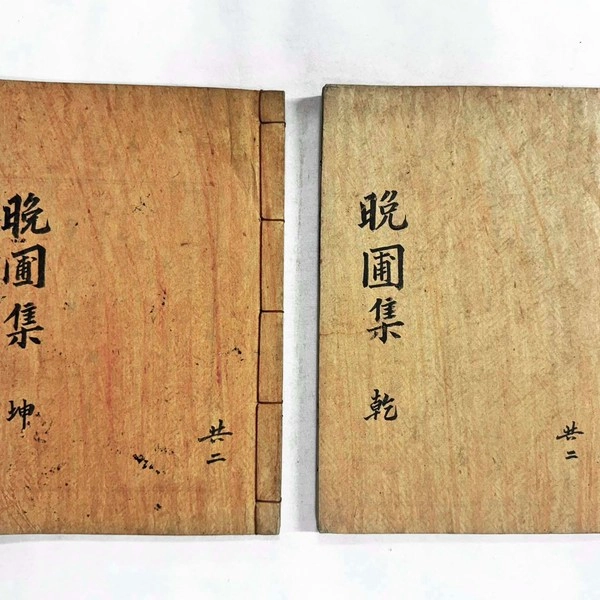 晩圃集 乾
共二
晩圃集 坤
共二